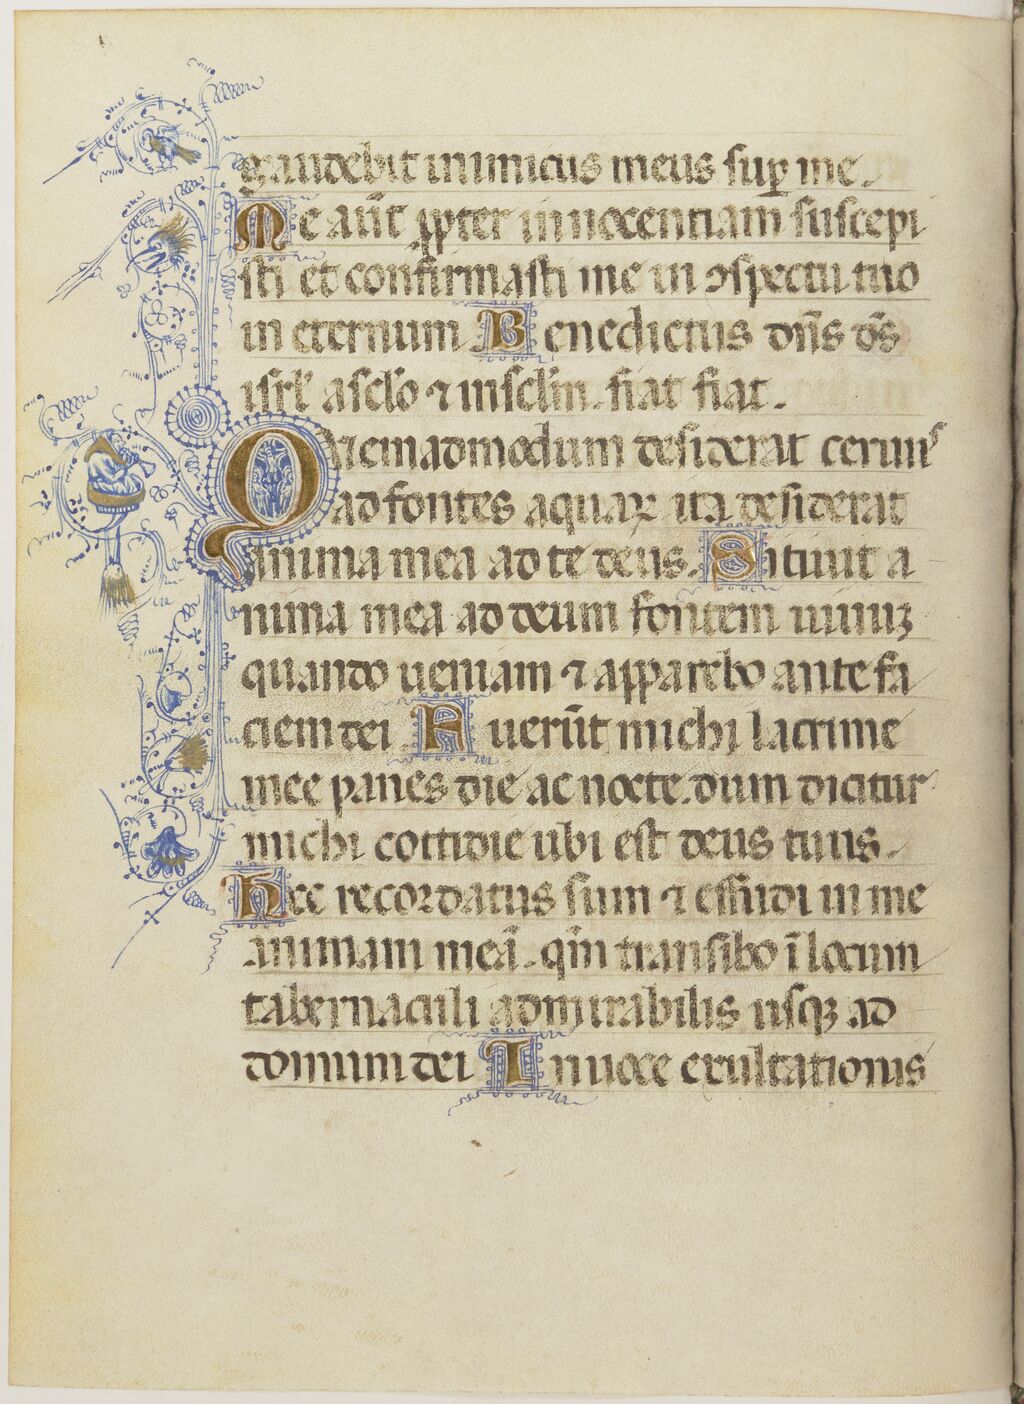 gaudebit inimicus meus sup me.
Me aūt ꝓpter innocentiam suscepi
sti et confirmasti me in ꝯspectu tuo
in eternum Benedictus dn̄s ds̄
isrl̄ asclo ⁊ insclm. fiat fiat.
Quemadmodum desiderat ceruus
ad fontes aquaꝝ ita desiderat
anima mea ad te deus. Sitiuit a
nima mea ad deum fontem uiuuꝫ
quando ueniam ⁊ apparebo ante fa
ciem dei Fuerūt michi lacrime
mee panes die ac nocte. dum dicitur
michi cottidie ubi est deus tuus.
Hec recordatus sum ⁊ effudi in me
animam meā. qm̄ transibo ī locum
tabernaculi admirabilis usqꝫ ad
domum dei In uoce exultationis